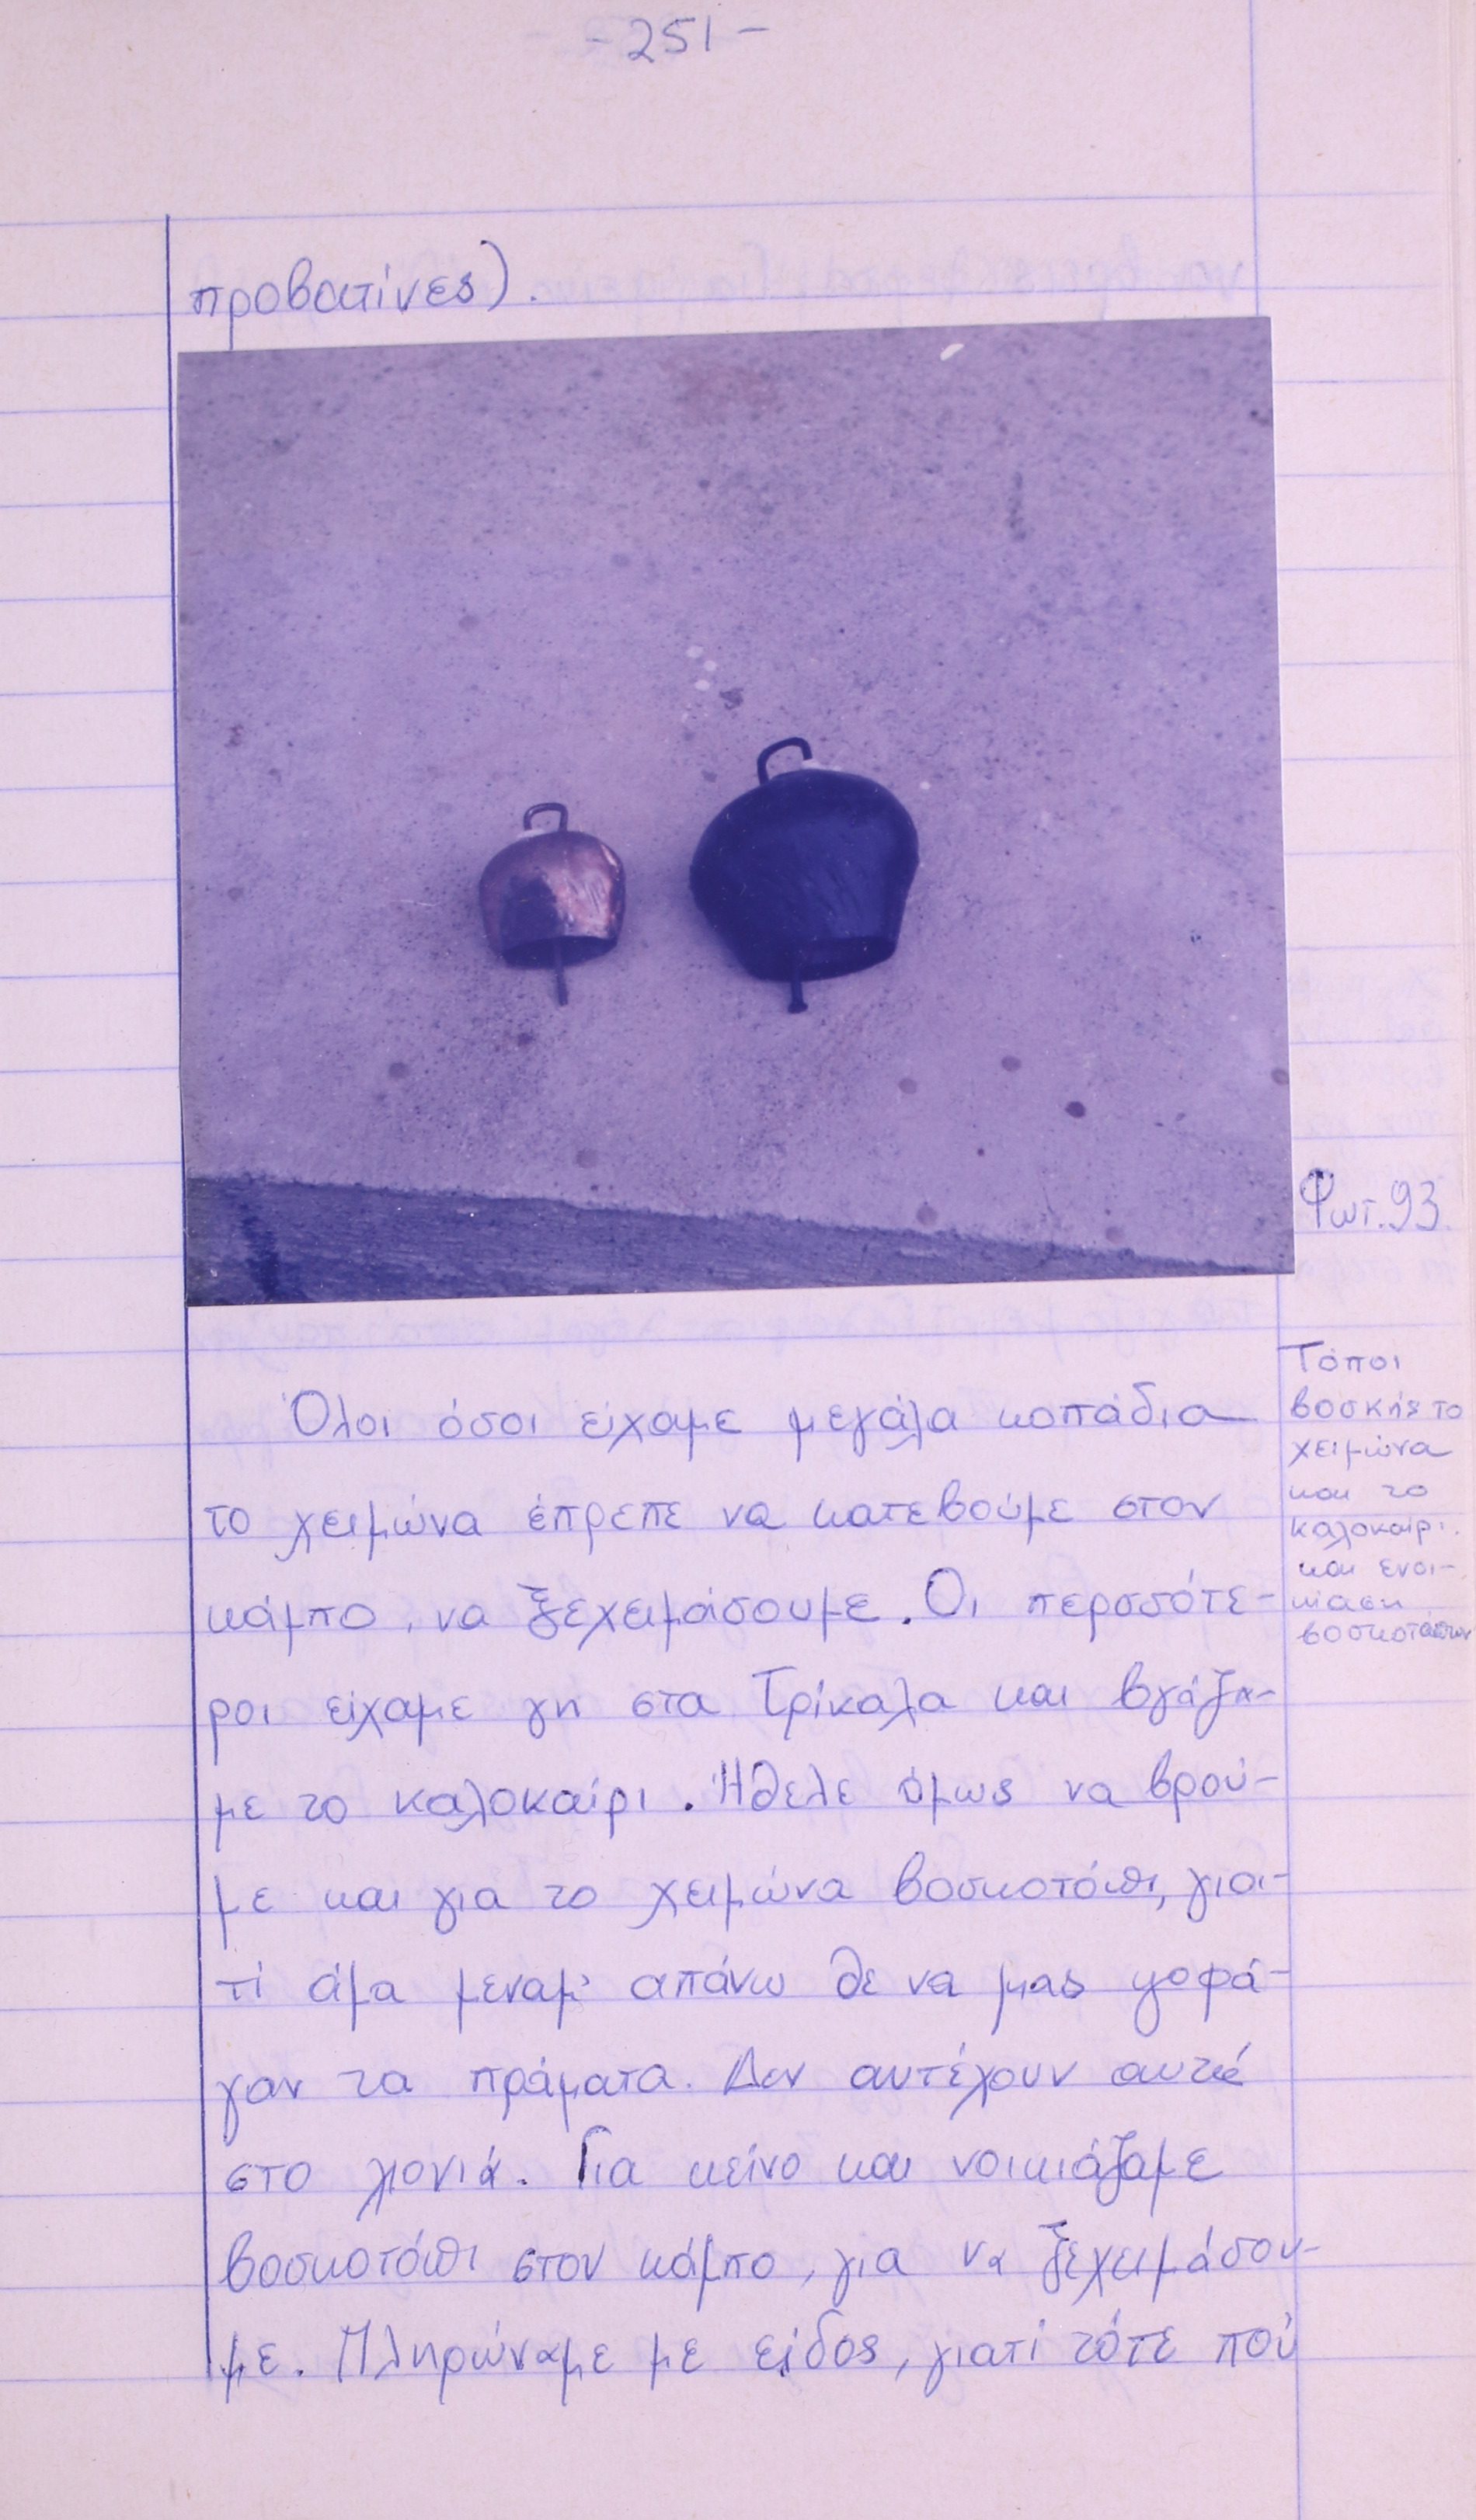 - 251 -
προβατίνες).
Φωτ. 93
Όλοι όσοι είχαμε μεγάλα κοπάδια
το χειμώνα έπρεπε να κατεβούμε στον
κάμπο, να ξεχειμάσουμε. Οι περσσότε-
ροι είχαμε γη στα Τρίκαλα και βγάζα-
με το καλοκαίρι. Ήθελε όμως να βρού-
με και για το χειμώνα βοσκοτόπι, για-
τί άμα μεναμ' απάνω θε να μας ψοφά-
γαν τα πράματα. Δεν αντέχουν αυτά
στο χιονιά. Για κείνο και νοικιάζαμε
βοσκοτόπι στον κάμπο, για να ξεχειμάσου-
με. Πληρώναμε με είδος, γιατί τότε πού
Τόποι
βοσκής το
χειμώνα
και το
καλοκαίρι.
και ενοι-
κίαση
βοσκοτόπων